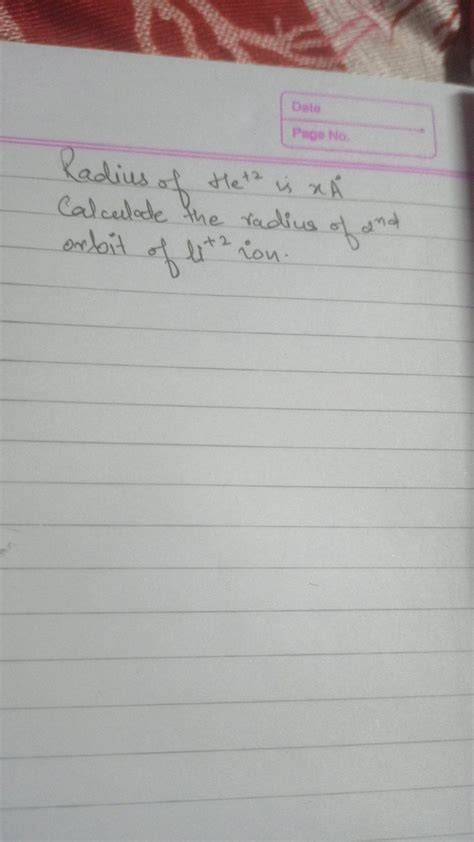 Date
Page No.
Radius of He⁺² is xÅ
Calculate the radius of 2nd
orbit of Li⁺² ion.